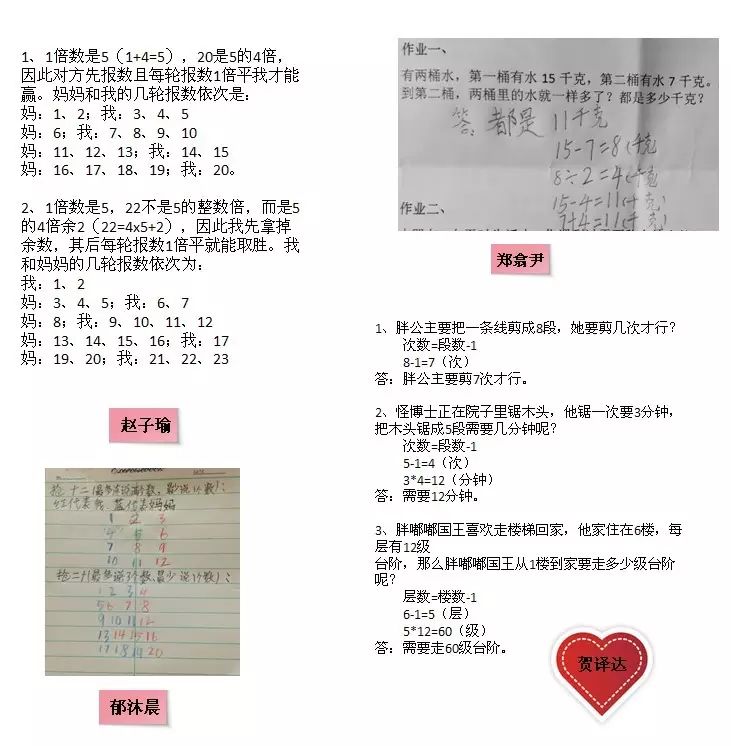 1、1倍数是5（1+4=5），20是5的4倍，
因此对方先报数且每轮报数1倍平我才能
赢。妈妈和我的几轮报数依次是：
妈：1、2；我：3、4、5
妈：6；我：7、8、9、10
妈：11、12、13；我：14、15
妈：16、17、18、19；我：20。
2、1倍数是5，22不是5的整数倍，而是5
的4倍余2（22=4x5+2），因此我先拿掉
余数，其后每轮报数1倍平就能取胜。我
和妈妈的几轮报数依次为：
我：1、2
妈：3、4、5；我：6、7
妈：8；我：9、10、11、12
妈：13、14、15、16；我：17
妈：19、20；我：21、22、23
赵子瑜
抢十二（最多说两个数，最少说1个数）：
红代表我，蓝代表妈妈
1 2 3
4 5 6
7 8 9
10 11 12
抢二十（最多说3个数，最少说1个数）：
1 2 3 4
5 6 7 8
9 10 11 12
13 14 15 16
17 18 19 20
郁沐晨
作业一、
有两桶水，第一桶有水 15 千克，第二桶有水 7 千克。
到第二桶，两桶里的水就一样多了？都是多少千克？
答：都是 11千克
15-7=8（千克
8÷2=4（千克
15-4=11（千克）
7+4=11（千克）
作业二、
郑翕尹
1、胖公主要把一条线剪成8段，她要剪几次才行？
次数=段数-1
8-1=7（次）
答：胖公主要剪7次才行。
2、怪博士正在院子里锯木头，他锯一次要3分钟，
把木头锯成5段需要几分钟呢？
次数=段数-1
5-1=4（次）
3*4=12（分钟）
答：需要12分钟。
3、胖嘟嘟国王喜欢走楼梯回家，他家住在6楼，每
层有12级
台阶，那么胖嘟嘟国王从1楼到家要走多少级台阶
呢？
层数=楼数-1
6-1=5（层）
5*12=60（级）
答：需要走60级台阶。
贺译达